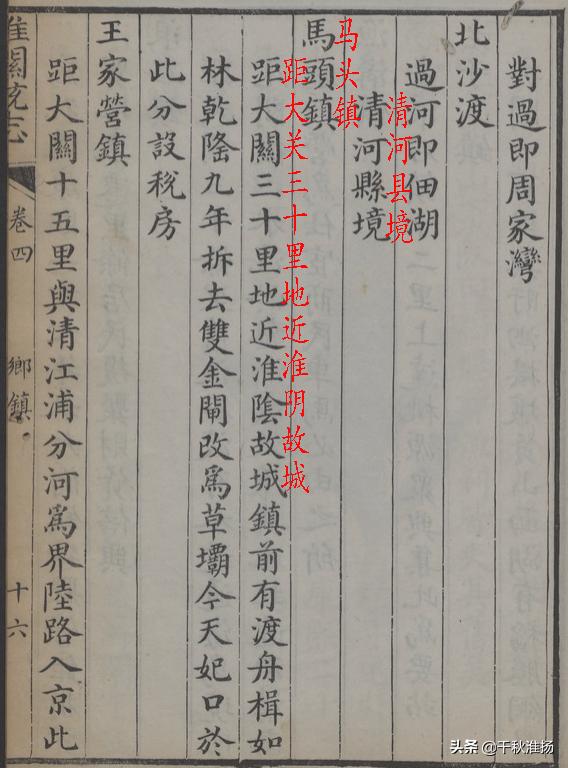 對過即周家灣
北沙渡
過河即佃湖
清河县境
清河縣境
马头镇
馬頭鎮
距大关三十里地近淮阴故城
距大關三十里地近淮陰故城鎮前有渡舟楫如
林乾隆九年拆去雙金閘改爲草壩今天妃口於
此分設稅房
王家營鎮
距大關十五里與清江浦分河爲界陸路入京此
淮關統志
卷四
鄉鎮
十六
头条 @千秋淮扬